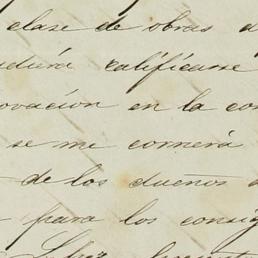 clase de obras
calificarse
ovación en la con
se me correrá
de los dueños
para los consig